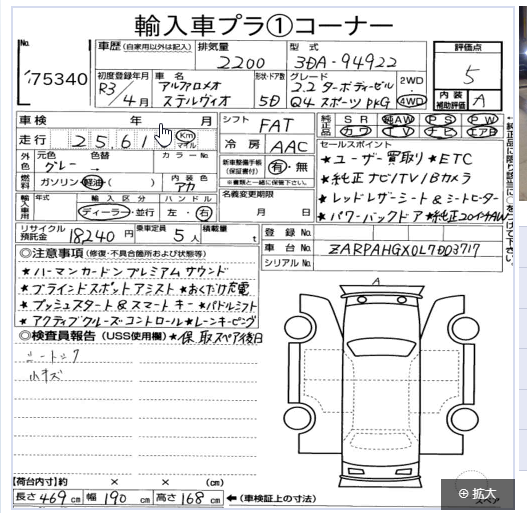 輸入車プラ①コーナー
No. 75340
車歴 (自家用以外は記入) 排気量 2200 型式 3DA-94922 評価点 5
初度登録年月 R3/4月 車名 アルファロメオ ステルヴィオ 形状・ドア数 5D グレード 2.2 ターボディーゼル Q4 スポーツ PKG 2WD 4WD 内装補助評価 A
車検 年 月 シフト FAT 純正品 SR 純AW PS PW
カワ TV ナビ エアB
走行 25,61 Km マイル 冷房 AAC
セールスポイント
外色 元色 グレー 色替 → カラーNo.
★ユーザー買取り ★ETC
新車整備手帳(保証書付) 有・無 ※書類と一緒に保管下さい。
★純正ナビ/TV/Bカメラ
燃料 ガソリン・軽油・( ) 内装色 アカ
★レッドレザーシート&シートヒーター
輸入車用 年式 輸入区分 ディーラー・並行 ハンドル 左・右 名義変更期限 月 日
★パワーバックドア ★純正20インチAW
リサイクル預託金 18240円 乗車定員 5人 積載量 t 登録No.
車台No. ZARPAHGX0L7D03717
シリアルNo.
◎注意事項 (修復・不具合箇所および状態等)
★ハーマンカードンプレミアムサウンド
★ブラインドスポットアシスト ★おくだけ充電
★プッシュスタート&スマートキー ★パドルシフト
★アクティブクルーズコントロール ★レーンキーピング
◎検査員報告 (USS使用欄) ★保 取 スペア後日
小キズ
【荷台内寸】約 × × (cm)
長さ 469 cm 幅 190 cm 高さ 168 cm ←(車検証上の寸法)
スペア
拡大